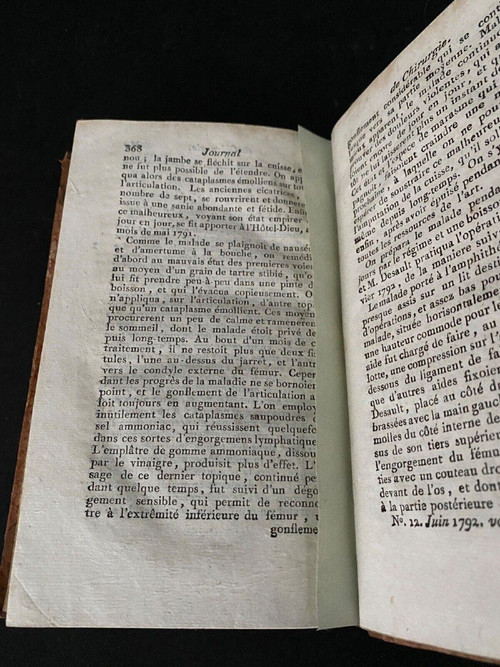 368 Journal
nou; la jambe se fléchit sur la cuisse, e
ne fut plus possible de l'étendre. On app
qua alors des cataplasmes émolliens sur tou
l'articulation. Les anciennes cicatrices,
nombre de sept, se rouvrirent et donnere
issue à une sanie abondante et fétide. Enfi
ce malheureux, voyant son état empirer
jour en jour, se fit apporter à l'Hôtel-Dieu,
mois de mai 1791.
Comme le malade se plaignoit de nausée
et d'amertume à la bouche, on remédi
d'abord au mauvais état des premieres voies
au moyen d'un grain de tartre stibié, qu'o
lui fit prendre peu-à-peu dans une pinte d
boisson, et qui l'évacua copieusement. O
n'appliqua, sur l'articulation, d'autre top
que qu'un cataplasme émollient. Ces moyen
procurerent un peu de calme et ramenèren
le sommeil, dont le malade étoit privé de
puis long-temps. Au bout d'un mois de c
traitement, il ne restoit plus que deux fi
tules, l'une au-dessus du jarret, et l'autr
vers le condyle externe du fémur. Cepen
dant les progrès de la maladie ne se bornoien
point, et le gonflement de l'articulation a
loit toujours en augmentant. L'on employ
inutilement les cataplasmes saupoudrés d
sel ammoniac, qui réussissent quelquefo
dans ces sortes d'engorgemens lymphatique
L'emplâtre de gomme ammoniaque, dissou
par le vinaigre, produisit plus d'effet. L'
sage de ce dernier topique, continué pe
dant quelque temps, fut suivi d'un dégo
gement sensible, qui permit de reconno
tre à l'extrêmité inférieure du fémur,
gonfleme
de Chirurgie,
gonflement considérable qui se con
vers sa partie moyenne. Mal
le malade continu
douleurs violentes, qui
en jour, et
plus un instant
marasme qu
craindre une
l'espece de
à laquelle on
de soustraire ce malheureux
l'amputation de la cuisse, qu'il s
mais long-temps. On s'
enfin, après avoir épuisé pendant
toutes les ressources de l'art.
On prépara le malade pendant
jours par le régime et une boisson
et M. Desault pratiqua l'opération
vier 1792, de la maniere suivante
Le malade porté à l'amphithé
presque assis sur un lit destiné
d'opérations, et assez bas pou
malade, située horisontalement
une hauteur commode pour l
aide fut chargé de faire, au m
lotte, une compression sur l'a
dessous du ligament de fa
que d'autres aides fixoien
Desault, placé au côté d
brassées avec la main gauch
molles du côté interne de
sus de son tiers supérieur
l'engorgement du fému
ties avec un couteau dro
devant de l'os, et dont
à la partie postérieure
No. 12. Juin 1792. vo